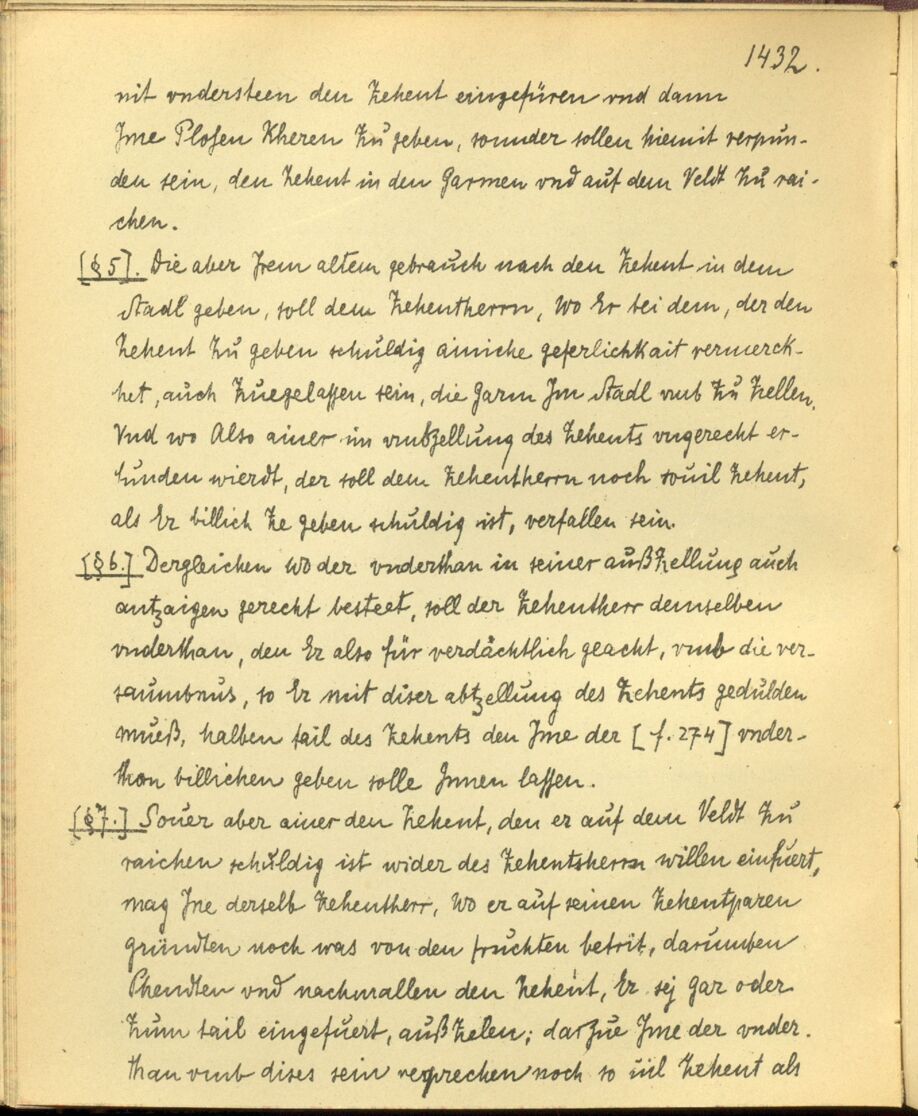 1432.
nit vndersteen den Zehent eingefüren vnd dann
Jme Plosen Kheren Zu geben, sonnder sollen hiemit verpun-
den sein, den Zehent in den Garmen vnd auf dem Veldt Zu rai-
chen.
[§5]. Die aber Jrem altem gebrauch nach den Zehent in dem
Stadl geben, soll dem Zehentherrn, Wo Er bei dem, der den
Zehent Zu geben schuldig ainiche geferlichkait vermerck-
het, auch Zuegelassen sein, die Garm Jm Stadl vmb Zu Zellen.
Vnd wo Also ainer im vmbzellung des Zehents vngerecht er-
funden wierdt, der soll dem Zehentherrn noch souil Zehent,
als Er billich Ze geben schuldig ist, verfallen sein.
[§6.] Dergleichen wo der vnderthan in seiner außZellung auch
antzaigen gerecht besteet, soll der Zehentherr demselben
vnderthan, den Er also für verdächtlich geacht, vmb die ver-
saumbnus, so Er mit diser abtzellung des Zehents gedulden
mueß, halben tail des Zehents den Jme der [f. 274] vnder-
thon billichen geben solle Jnnen lassen.
[§7.] Souer aber ainer den Zehent, den er auf dem Veldt Zu
raichen schuldig ist wider des Zehentsherrn willen einfuert,
mag Jne derselb Zehentherr, Wo er auf seinen Zehentparen
gründten noch was von den fruchten betrit, darumben
Phendten vnd nachmallen den Zehent, Er sej Gar oder
Zum tail eingefuert, auß Zelen; darzue Jme der vnder-
than vmb dises sein verprechen noch so uil Zehent als